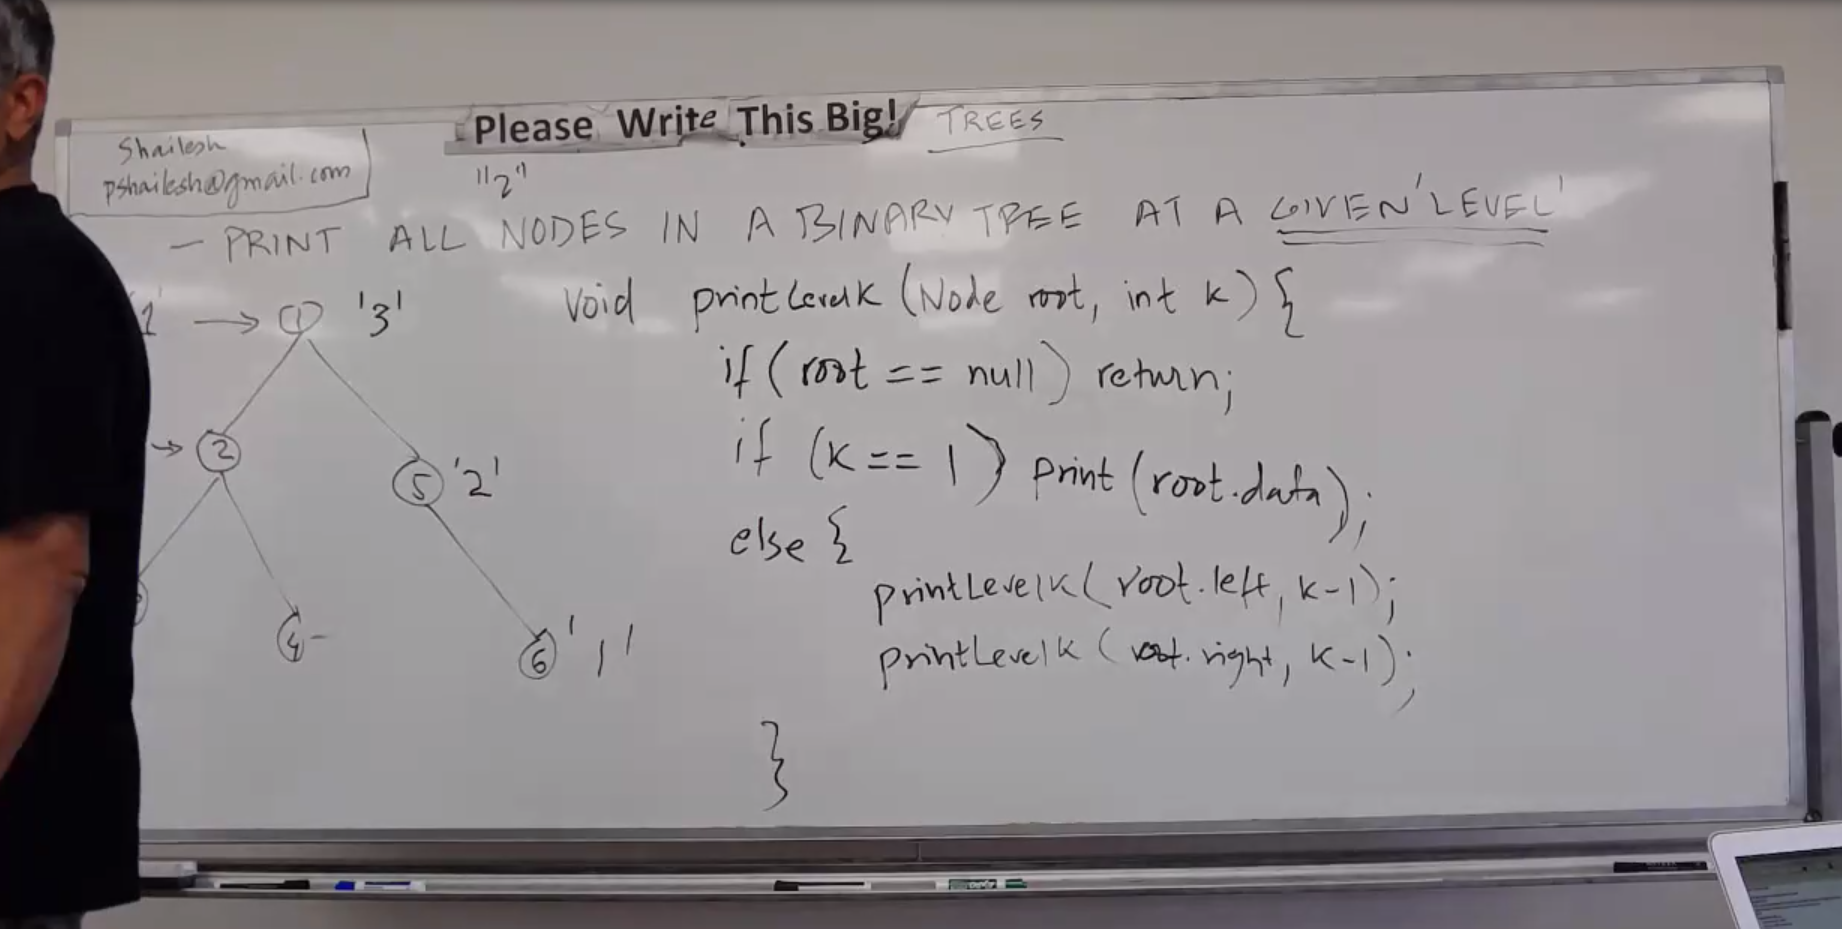 Please Write This Big! TREES
Shailesh
pshailesh@gmail.com
"2"
- PRINT ALL NODES IN A BINARY TREE AT A GIVEN 'LEVEL'
1' → 1 '3'
→ 2
5 '2'
4 -
6 '1'
void printLevelK (Node root, int k) {
if (root == null) return;
if (k == 1) print (root.data);
else {
printLevelK (root.left, k-1);
printLevelK (root.right, k-1);
}